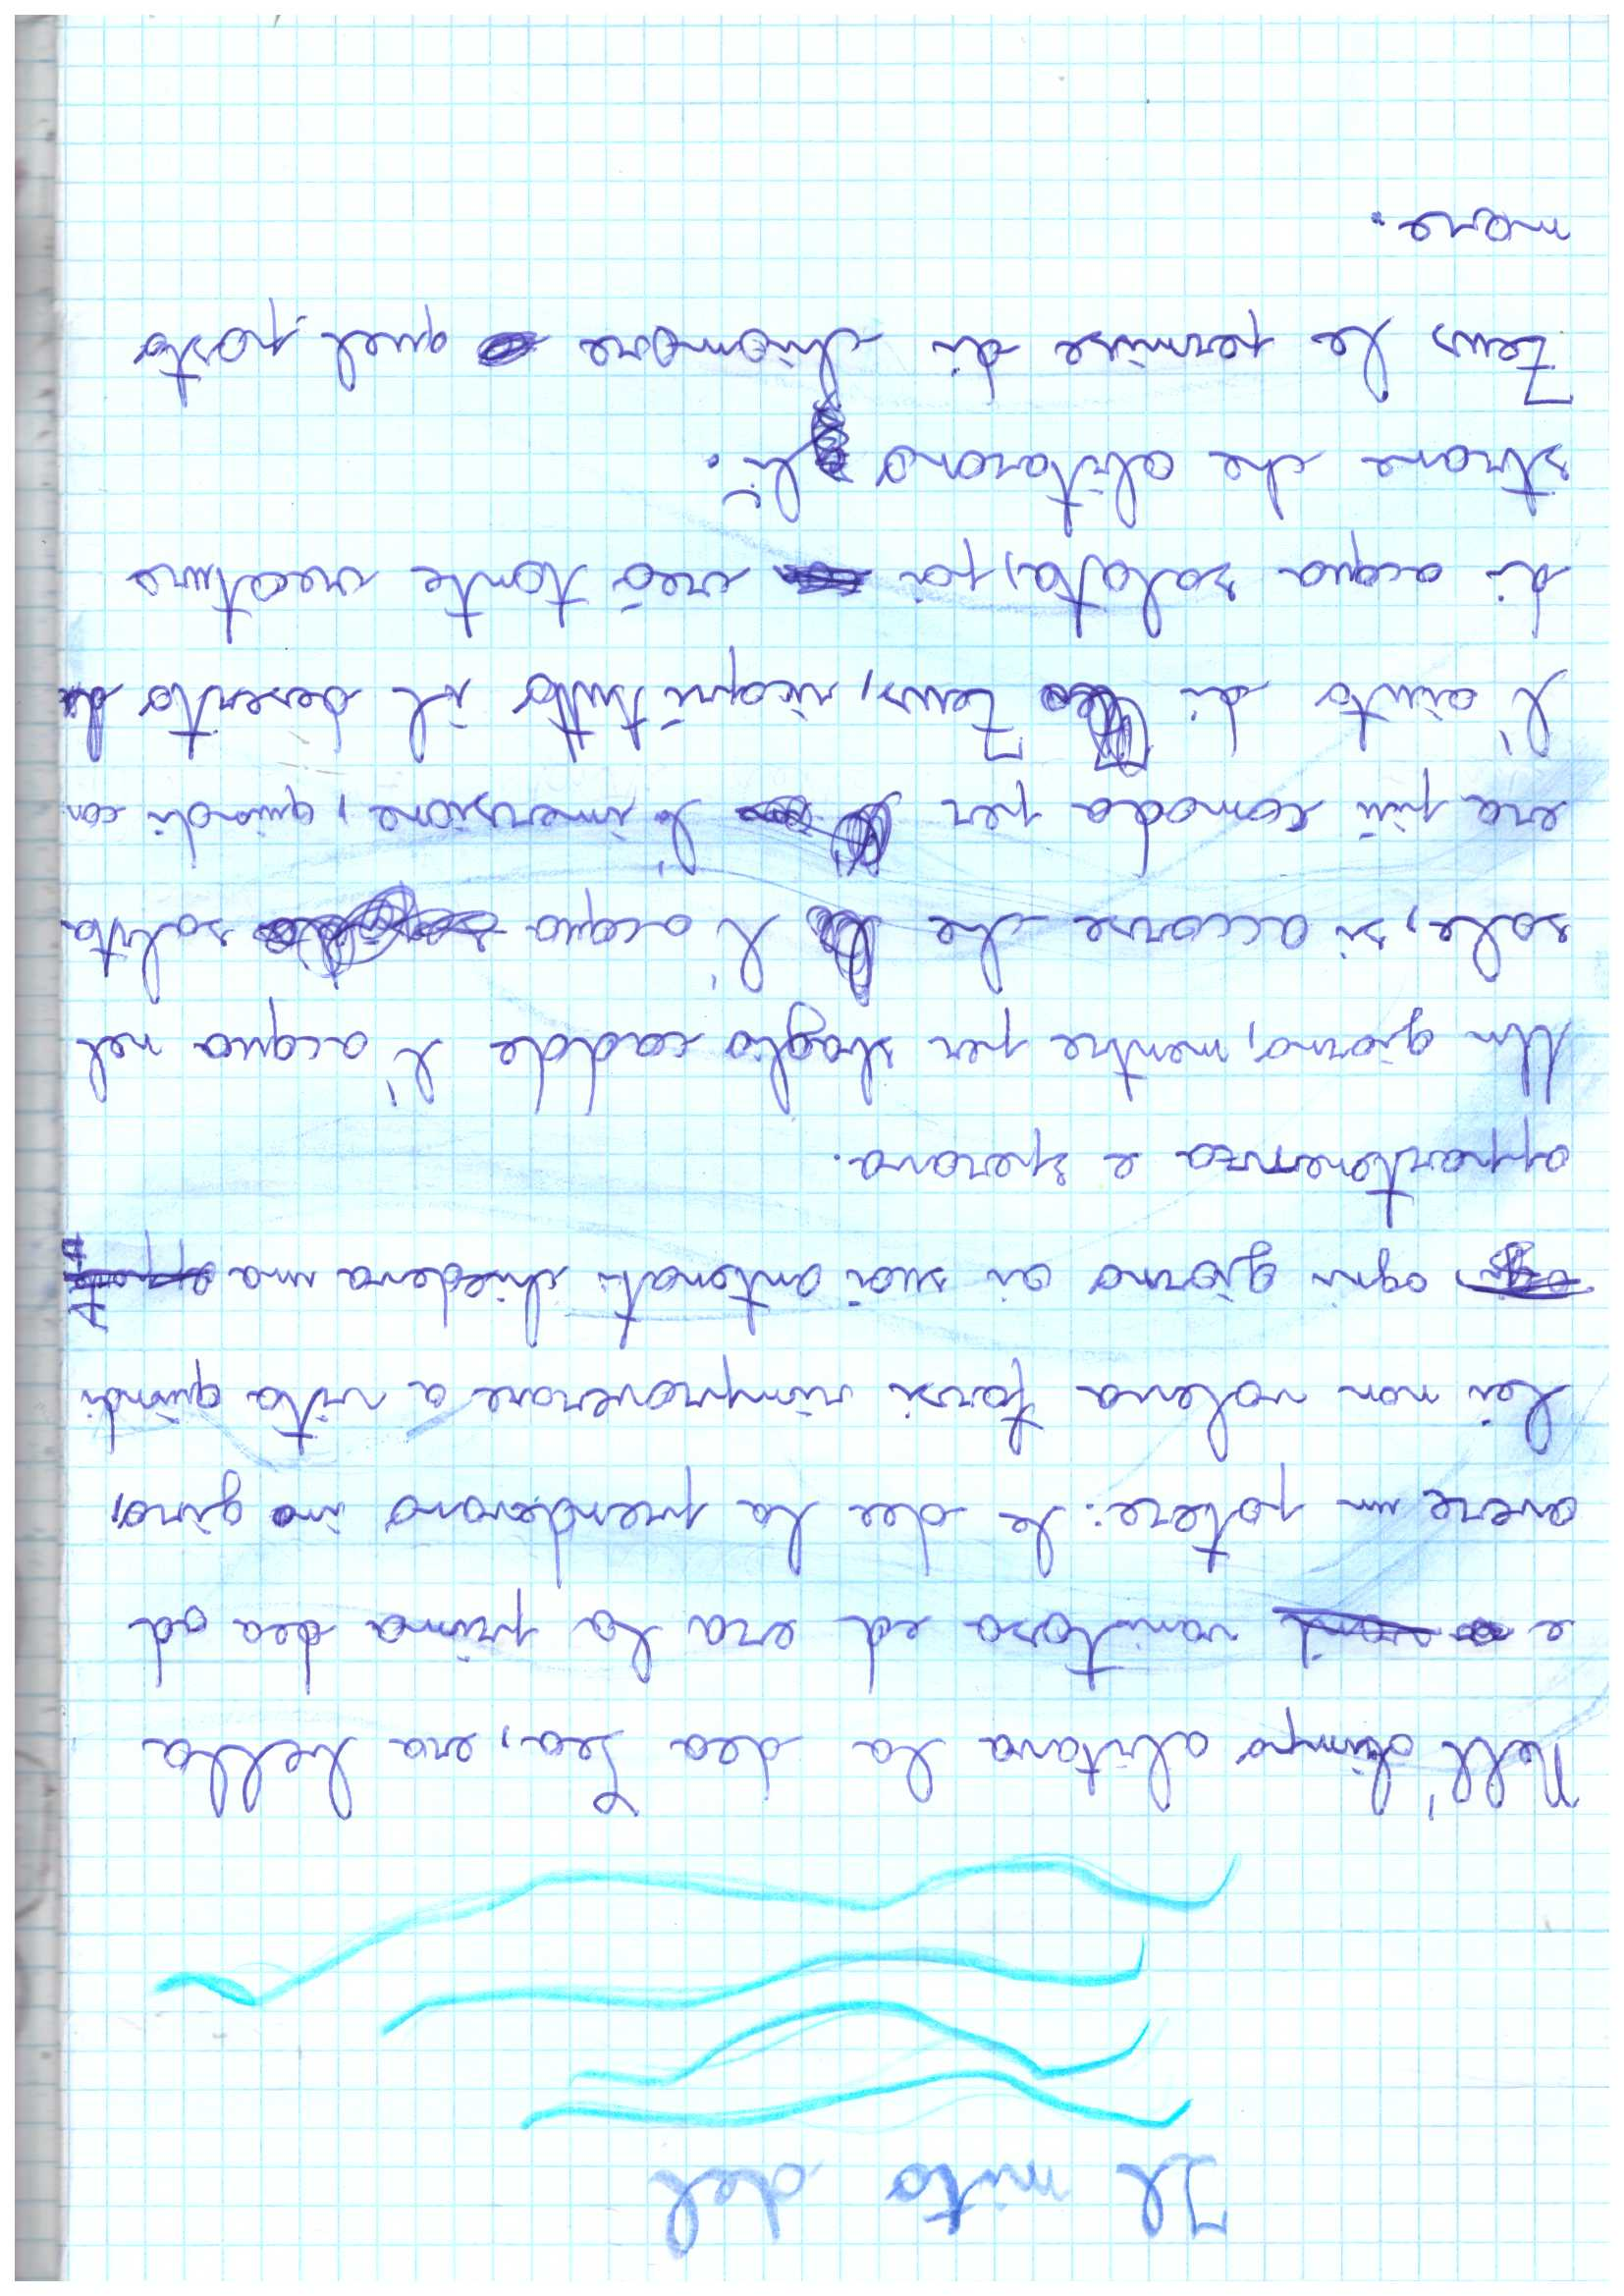 Il mito del
Nell'olimpo abitava la dea Sea, era bella
e vanitosa ed era la prima dea ad
avere un potere: le dee la prendevano in giro,
lei non voleva farsi rimproverare a vita quindi
ogni giorno ai suoi antenati chiedeva una
appartenenza e sperava.
Un giorno, mentre per sbaglio cadde l'acqua nel
sale, si accorse che l'acqua salata
era più comoda per l'immersione, quindi con
l'aiuto di Zeus, ricoprì tutto il deserto
di acqua salata, poi creò tante creature
strane che abitarono lì.
Zeus le permise di chiamare quel posto
mare.